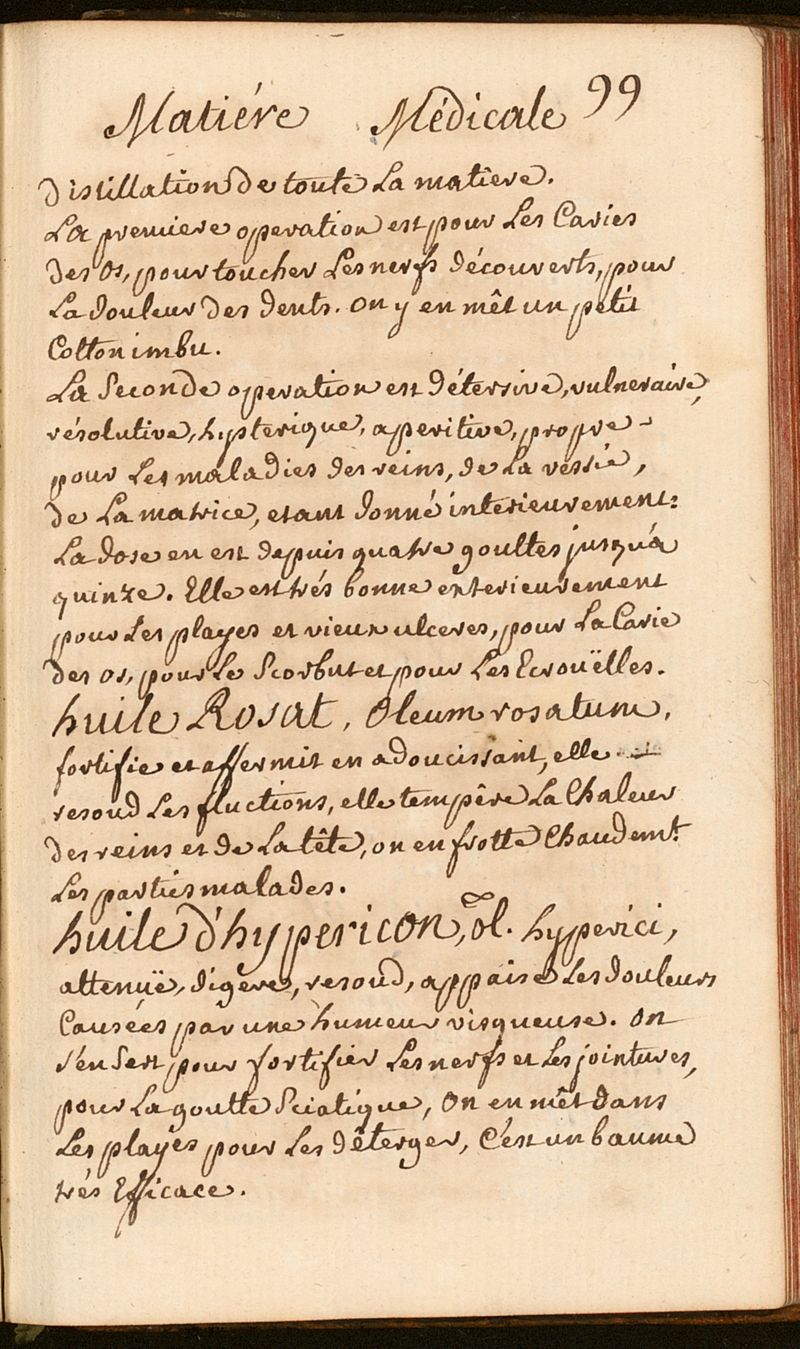 Matiére Médicale 99
distillation de toute La matiere.
La premiere operation est pour Les Caries
des os, pour toucher Les nerfs découverts, pour
La douleur des dents. On y en mêt un petit
Cotton imbu.
La Seconde operation est détersive, vulneraire,
résolutive, hysterique, aperitive, propre
pour Les maladies des reins, de La vessie,
de La matrice, etant donné interieurement:
La dose en est depuis quatre gouttes jusqu'a
quinze. Elle est trés bonne exterieurement
pour Les playes et vieux ulceres, pour La Carie
des os, pour Le Scorbut et pour Les Ecrouëlles.
huile Rosat, Oleum rosatum,
fortifie et affermit en adoucissant, elle
resoud Les fluctions, elle tempêre La Chaleur
des reins et de La tête, on en frotte Chaudemt.
Les parties malades.
huile d'hypericon, ol. hyperici,
attenuë, digére, resoud, appaise Les douleurs
Causées par une humeur visqueuse. On
s'en Sert pour fortifier Les nerfs et Les jointures,
pour La goutte Sciatique, On en mêt dans
Les playes pour Les dêterger, C'est un baume
trés Efficace.